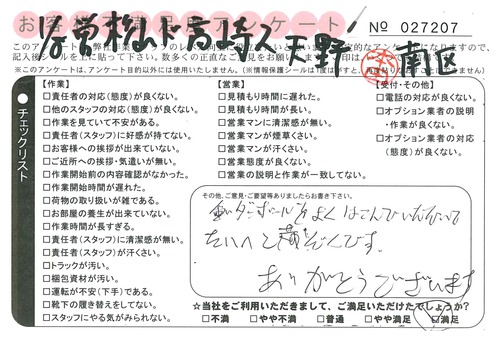 お客様満足度アンケート
№ 027207
1/8 営松山ド高崎ス天野 南区
このアンケートは、弊社作業
記入後シールを上に貼って下さい。数多くの正直なご意見をお願い
※このアンケートは、アンケート目的以外には使用いたしません。(※情報保護シールは1度はがすと、
チェックリスト
【作業】
□責任者の対応(態度)が良くない。
□他のスタッフの対応(態度)が良くない。
□作業を見ていて不安がある。
□責任者(スタッフ)に好感が持てない。
□お客様への挨拶が出来ていない。
□ご近所への挨拶・気遣いが無い。
□作業開始前の内容確認がなかった。
□作業開始時間が遅れた。
□荷物の取り扱いが雑である。
□お部屋の養生が出来ていない。
□作業時間が長すぎる。
□責任者(スタッフ)に清潔感が無い。
□責任者(スタッフ)が汗くさい。
□トラックが汚い。
□梱包資材が汚い。
□運転が不安(下手)である。
□靴下の履き替えをしてない。
□スタッフにやる気がみられない。
【営業】
□見積もり時間に遅れた。
□見積もり時間が長い。
□営業マンに清潔感が無い。
□営業マンが煙草くさい。
□営業マンが汗くさい。
□営業態度が良くない。
□営業の説明と作業が一致してない。
【受付・その他】
□電話の対応が良くない。
□オプション業者の説明
・作業が良くない。
□オプション業者の対応
(態度)が良くない。
その他、ご意見・ご要望等ありましたらお書き下さい。
ダンボールをよくはこんでいただいて
たいへん満ぞくです。
ありがとうございます
☆当社をご利用いただきまして、ご満足いただけたでしょうか?
□不満 □やや不満 □普通 □やや満足 □満足